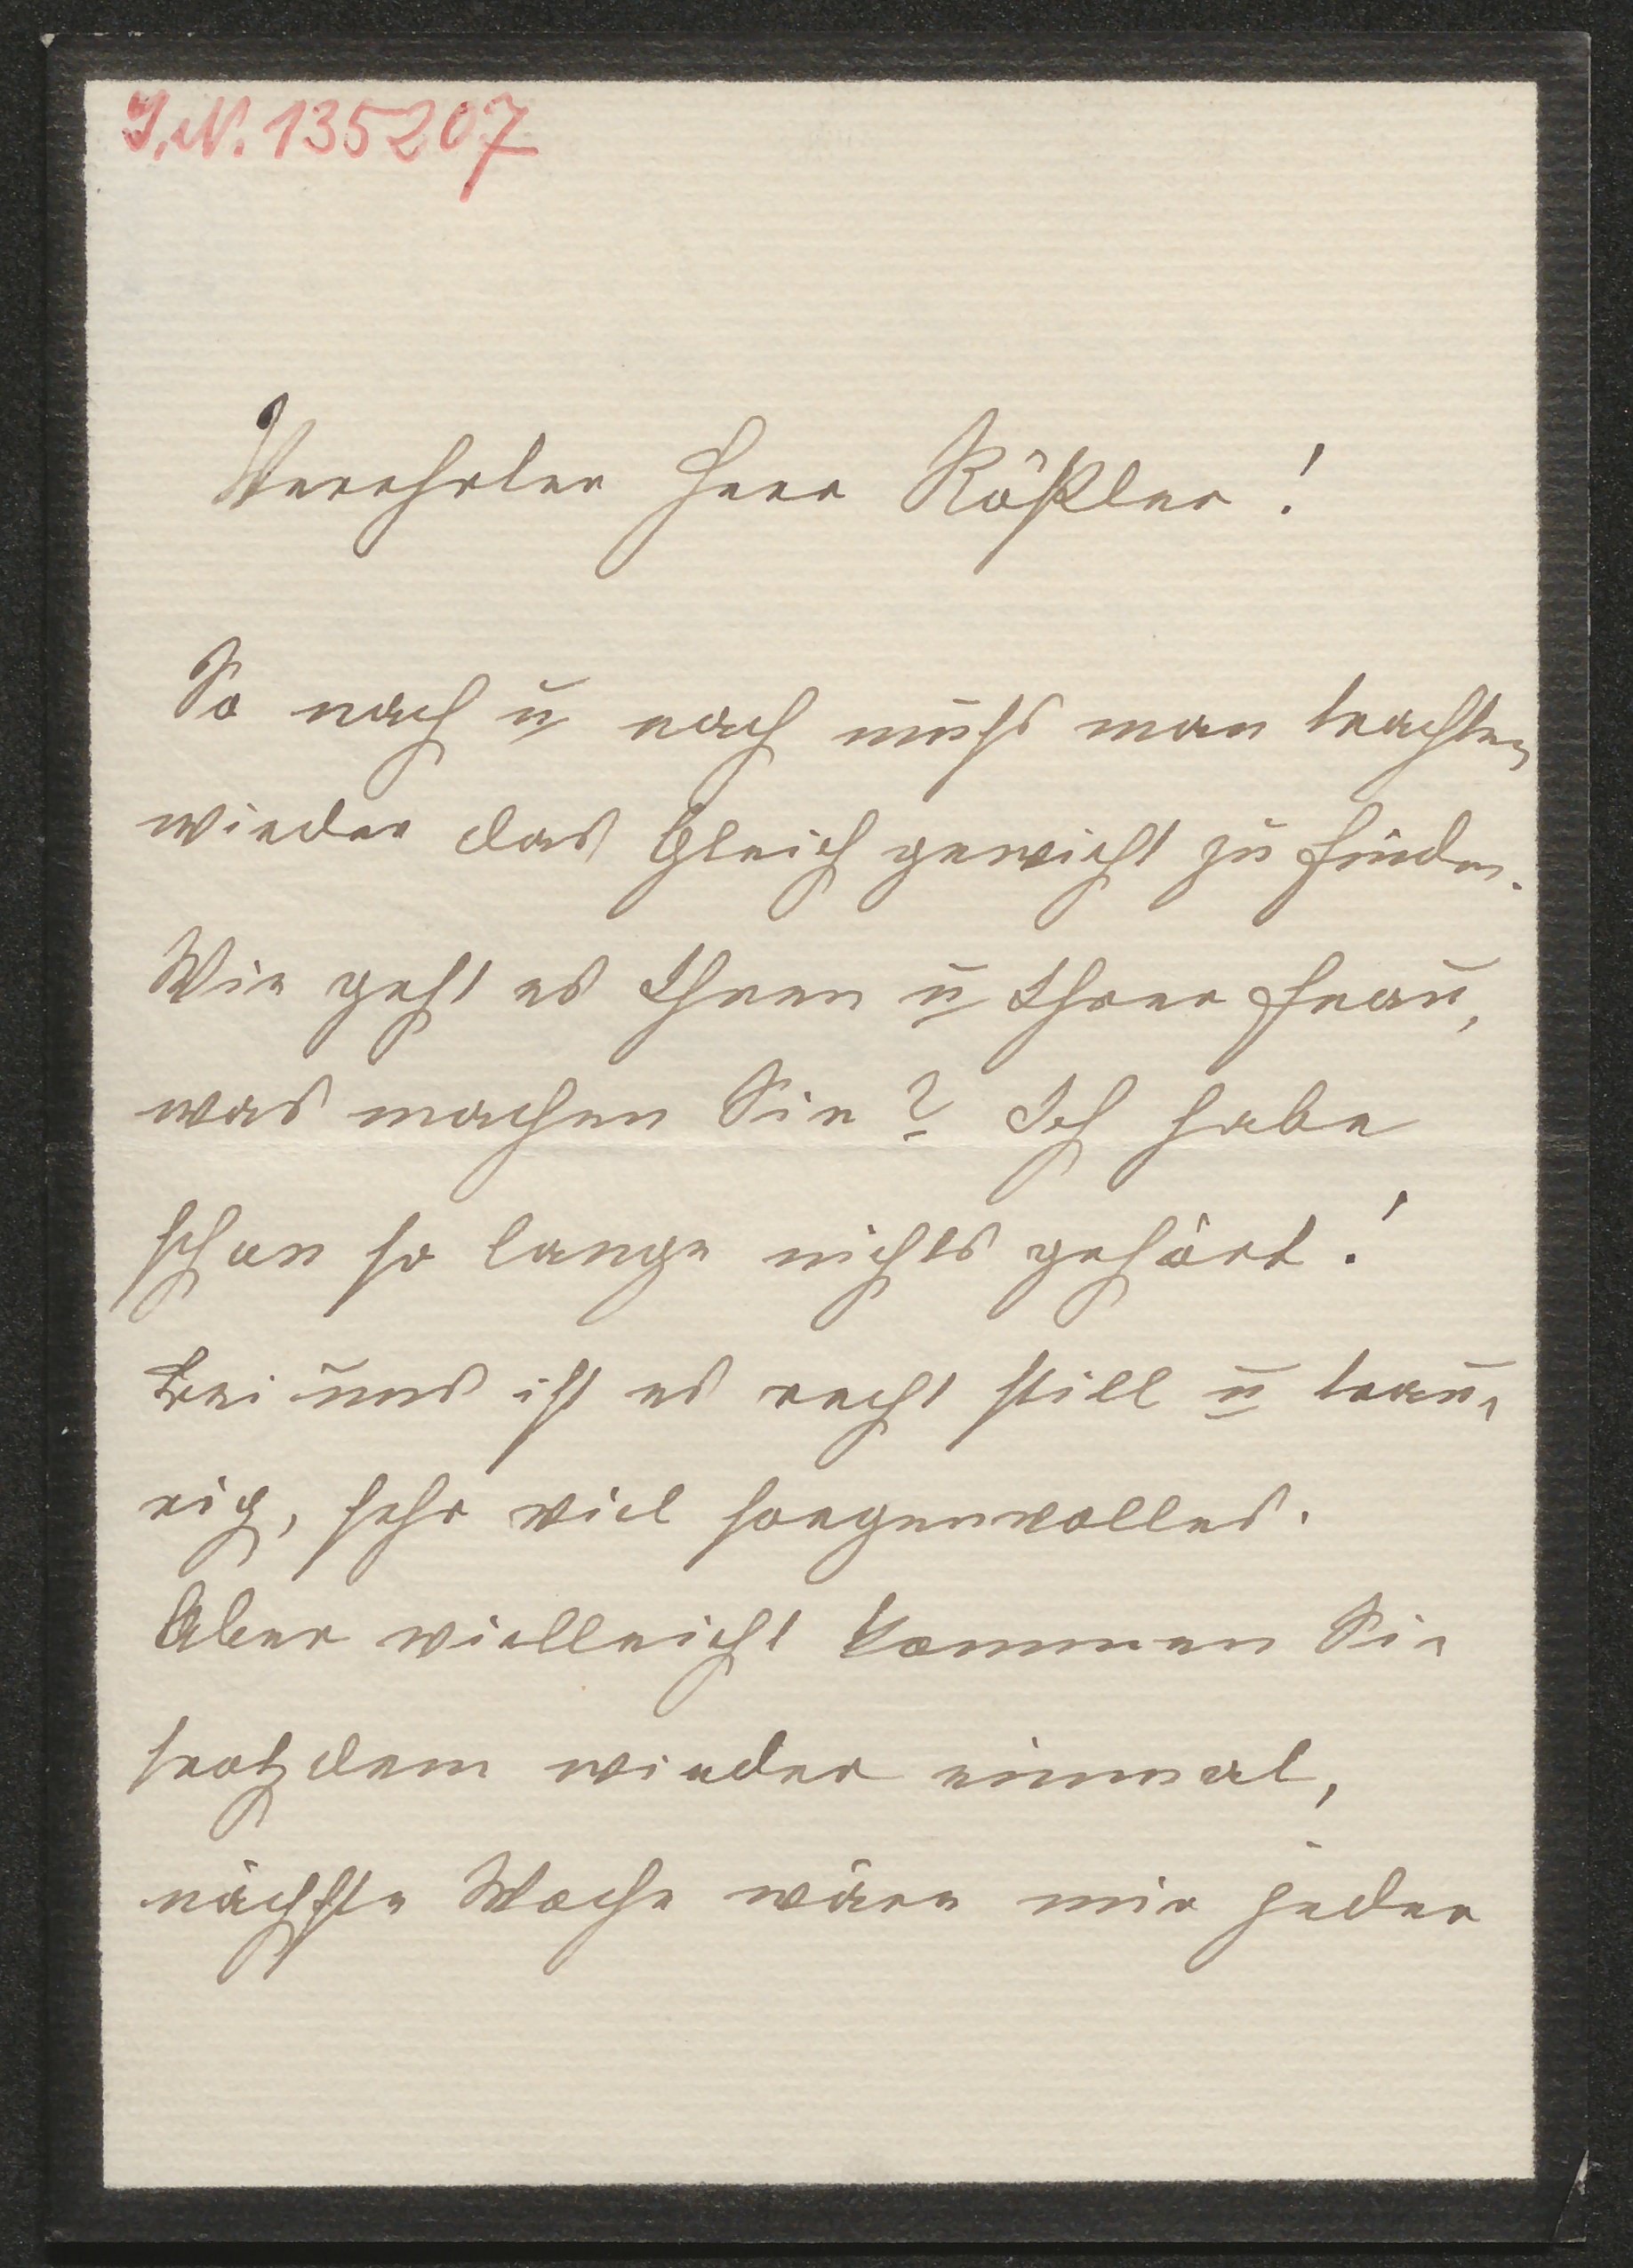 I.N. 135207
Verehrter Herr Rößler!
So nach u nach muß man trachten
wieder das Gleichgewicht zu finden.
Wie geht es Ihnen u Ihrer Frau,
was machen Sie? Ich habe
schon so lange nichts gehört!
Bei uns ist es recht still u trau-
rig, sehr viel sorgenvolles.
Aber vielleicht kommen Sie
trotzdem wieder einmal,
nächste Woche wäre mir jeder